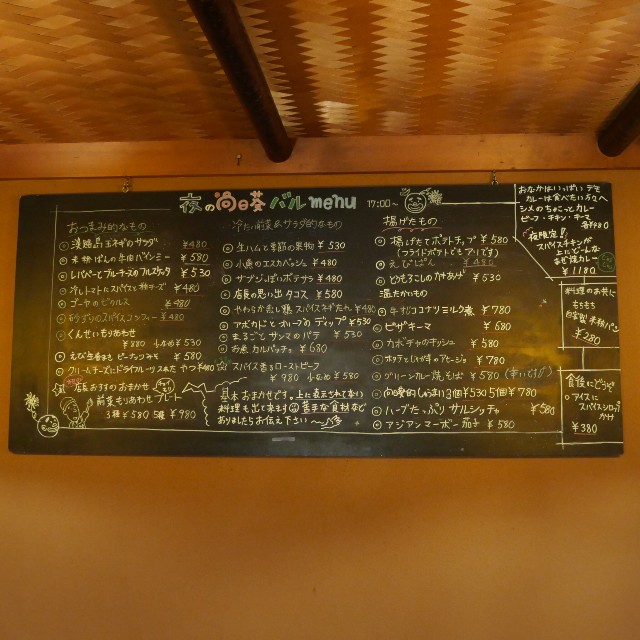 夜の向日葵バル menu 17:00～
おつまみ的なもの
淡路島玉ネギのサラダ ¥480
¥580
レバペーとブルーチーズのブルスケッタ ¥530
冷しトマトにスパイスと粉チーズ ¥480
ゴーヤのピクルス ¥480
¥480
くんせいもりあわせ
¥880 小なめ¥530
¥580
クリームチーズにドライフルーツ ¥480
店長おすすめおまかせ
前菜もりあわせプレート
3種¥580 5種¥980
冷たい前菜&サラダ的なもの
生ハムと季節の果物 ¥530
小魚のエスカベッシュ ¥480
サブジっぽいポテサラ ¥480
店長の思い出タコス ¥580
やわらか蒸し鶏 スパイスネギだれ ¥480
アボカドとオリーブのディップ ¥530
まるごとサンマのパテ ¥530
お魚カルパッチョ ¥680
スパイス香るローストビーフ
¥980 小なめ¥580
基本おまかせです。上に表示されてない
料理も出て来ます 苦手な食材など
ありましたらお伝え下さい
揚げたもの
揚げたてポテトチップ ¥580
(フライドポテトでもアリです)
えびぱん ¥480
ひよこ豆のかきあげ ¥530
温たかいもの
牛すじココナツミルク煮 ¥780
ピザキーマ ¥680
カボチャのチヂミ ¥580
¥780
グリーンカレー焼そば ¥580 (辛いです!!)
向日葵的しゅうまい 3個¥530 5個¥780
ハーブたっぷりサルシッチャ ¥580
アジアンマーボー茄子 ¥580
おなかはいっぱいデモ
カレーは食べたい方へ
シメのちょこっとカレー
ビーフ・チキン・キーマ
各¥480
夜限定!!
スパイスチキンが
上にどーんな
なぞ焼カレー
¥1180
料理のお共に
もちもち
自家製米粉パン
¥280
食後にどうぞ
アイスに
スパイスシロップ
かけ
¥380